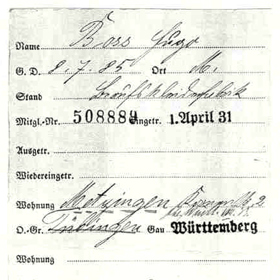 Name Boss Hugo
G. D. 8.7.85 Ort M.
Stand Berufskleiderfabrik
Mitgl.-Nr. 508889 Eingetr. 1. April 31
Ausgetr.
Wiedereingetr.
Wohnung Metzingen
O.-Gr. Tübingen Gau Württemberg
Wohnung